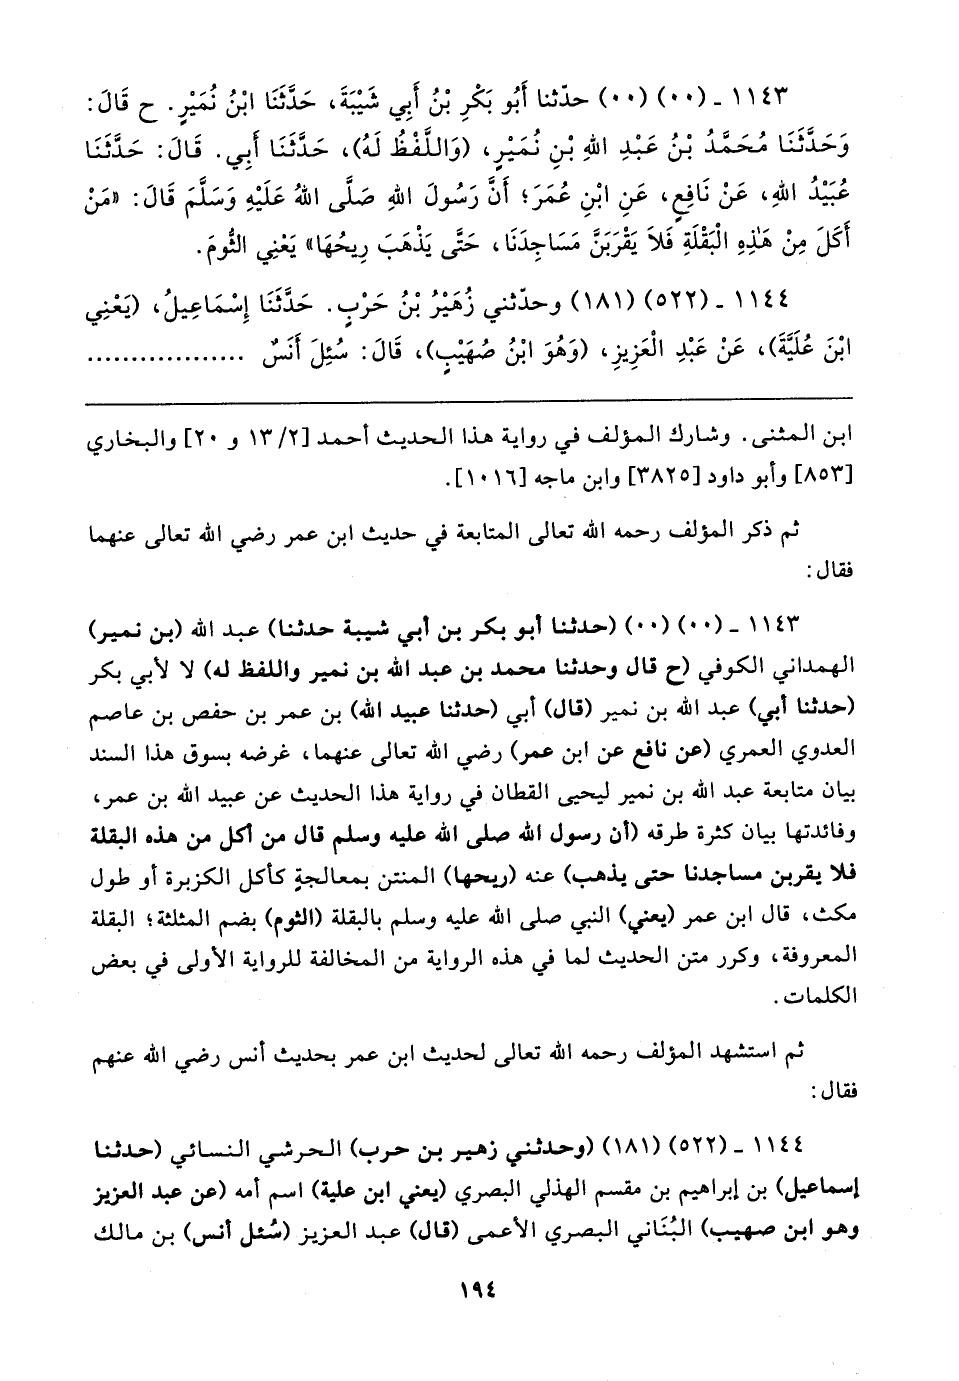 ١١٤٣ ـ (٠٠) (٠٠) حدّثنا أَبُو بَكْرِ بْنُ أَبِي شَيْبَةَ، حَدَّثَنَا ابْنُ نُمَيْرٍ. ح قَالَ:
وَحَدَّثَنَا مُحَمَّدُ بْنُ عَبْدِ اللهِ بْنِ نُمَيْرٍ، (وَاللَّفْظُ لَهُ)، حَدَّثَنَا أَبِي. قَالَ: حَدَّثَنَا
عُبَيْدُ اللهِ، عَنْ نَافِعٍ، عَنِ ابْنِ عُمَرَ؛ أَنَّ رَسُولَ اللهِ صَلَّى اللهُ عَلَيْهِ وَسَلَّمَ قَالَ: «مَنْ
أَكَلَ مِنْ هَٰذِهِ الْبَقْلَةِ فَلاَ يَقْرَبَنَّ مَسَاجِدَنَا، حَتَّى يَذْهَبَ رِيحُهَا» يَعْنِي الثُّومَ.
١١٤٤ ـ (٥٢٢) (١٨١) وحدّثني زُهَيْرُ بْنُ حَرْبٍ. حَدَّثَنَا إِسْمَاعِيلُ، (يَعْنِي
ابْنَ عُلَيَّةَ)، عَنْ عَبْدِ الْعَزِيزِ، (وَهُوَ ابْنُ صُهَيْبٍ)، قَالَ: سُئِلَ أَنَسٌ ..................
ابن المثنى. وشارك المؤلف في رواية هذا الحديث أحمد [٢/ ١٣ و ٢٠] والبخاري
[٨٥٣] وأبو داود [٣٨٢٥] وابن ماجه [١٠١٦].
ثم ذكر المؤلف رحمه الله تعالى المتابعة في حديث ابن عمر رضي الله تعالى عنهما
فقال:
١١٤٣ ـ (٠٠) (٠٠) (حدثنا أبو بكر بن أبي شيبة حدثنا) عبد الله (بن نمير)
الهمداني الكوفي (ح قال وحدثنا محمد بن عبد الله بن نمير واللفظ له) لا لأبي بكر
(حدثنا أبي) عبد الله بن نمير (قال) أبي (حدثنا عبيد الله) بن عمر بن حفص بن عاصم
العدوي العمري (عن نافع عن ابن عمر) رضي الله تعالى عنهما، غرضه بسوق هذا السند
بيان متابعة عبد الله بن نمير ليحيى القطان في رواية هذا الحديث عن عبيد الله بن عمر،
وفائدتها بيان كثرة طرقه (أن رسول الله صلى الله عليه وسلم قال من أكل من هذه البقلة
فلا يقربن مساجدنا حتى يذهب) عنه (ريحها) المنتن بمعالجةٍ كأكل الكزبرة أو طول
مكث، قال ابن عمر (يعني) النبي صلى الله عليه وسلم بالبقلة (الثوم) بضم المثلثة؛ البقلة
المعروفة، وكرر متن الحديث لما في هذه الرواية من المخالفة للرواية الأولى في بعض
الكلمات.
ثم استشهد المؤلف رحمه الله تعالى لحديث ابن عمر بحديث أنس رضي الله عنهم
فقال:
١١٤٤ ـ (٥٢٢) (١٨١) (وحدثني زهير بن حرب) الحرشي النسائي (حدثنا
إسماعيل) بن إبراهيم بن مقسم الهذلي البصري (يعني ابن علية) اسم أمه (عن عبد العزيز
وهو ابن صهيب) البُنَاني البصري الأعمى (قال) عبد العزيز (سُئل أنس) بن مالك
١٩٤